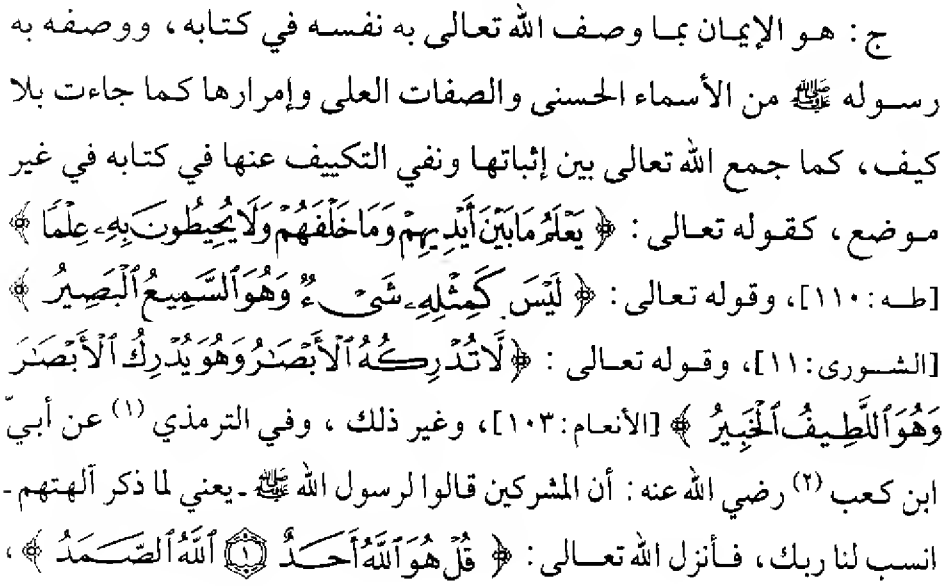 ج : هو الإيمان بما وصف الله تعالى به نفسه في كتابه ، ووصفه به
رسوله ﷺ من الأسماء الحسنى والصفات العلى وإمرارها كما جاءت بلا
كيف ، كما جمع الله تعالى بين إثباتها ونفي التكييف عنها في كتابه في غير
موضع ، كقوله تعالى : ﴿ يَعْلَمُ مَا بَيْنَ أَيْدِيهِمْ وَمَا خَلْفَهُمْ وَلَا يُحِيطُونَ بِهِۦ عِلْمًا ﴾
[طه : ١١٠] ، وقوله تعالى : ﴿ لَيْسَ كَمِثْلِهِۦ شَىْءٌ وَهُوَ ٱلسَّمِيعُ ٱلْبَصِيرُ ﴾
[الشورى : ١١] ، وقوله تعالى : ﴿ لَّا تُدْرِكُهُ ٱلْأَبْصَٰرُ وَهُوَ يُدْرِكُ ٱلْأَبْصَٰرَ
وَهُوَ ٱللَّطِيفُ ٱلْخَبِيرُ ﴾ [الأنعام : ١٠٣] ، وغير ذلك ، وفي الترمذي (١) عن أبيّ
ابن كعب (٢) رضي الله عنه : أن المشركين قالوا لرسول الله ﷺ ـ يعني لما ذكر آلهتهم ـ
انسب لنا ربك ، فأنزل الله تعالى : ﴿ قُلْ هُوَ ٱللَّهُ أَحَدٌ ۝١ ٱللَّهُ ٱلصَّمَدُ ﴾ ،